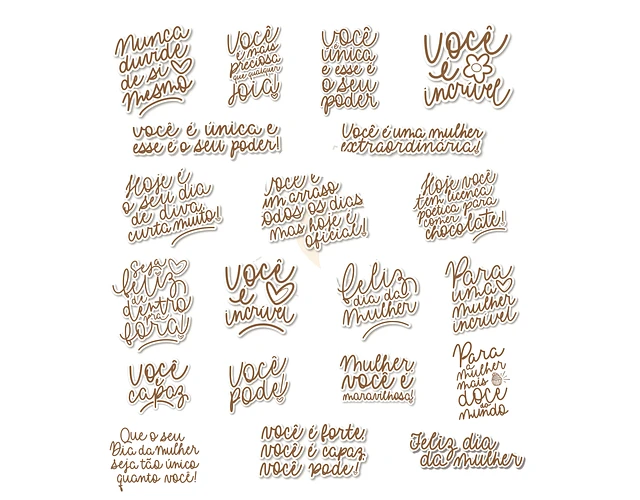 Nunca
duvide
de si
mesmo
Você
é mais
preciosa
que qualquer
joia!
você
única
e esse é
o seu
poder
você
é
incrível
você é única e
esse é o seu poder!
Você é uma mulher
extraordinária!
Hoje é
o seu dia
de diva,
curta muito!
você é
um arraso
odos os dias
mas hoje é
oficial!
Hoje você
tem licença
poética para
comer
chocolate!
Seja
feliz
de
dentro
pra
fora!
você
é
incrível
feliz
dia da
mulher
Para
uma
mulher
incrível
você
é
capaz
você
pode!
Mulher
você é
maravilhosa!
Para
a
mulher
mais
doce
do
mundo
Que o seu
Dia da mulher
seja tão único
quanto você!
você é forte,
você é capaz,
você pode!
Feliz dia
da mulher